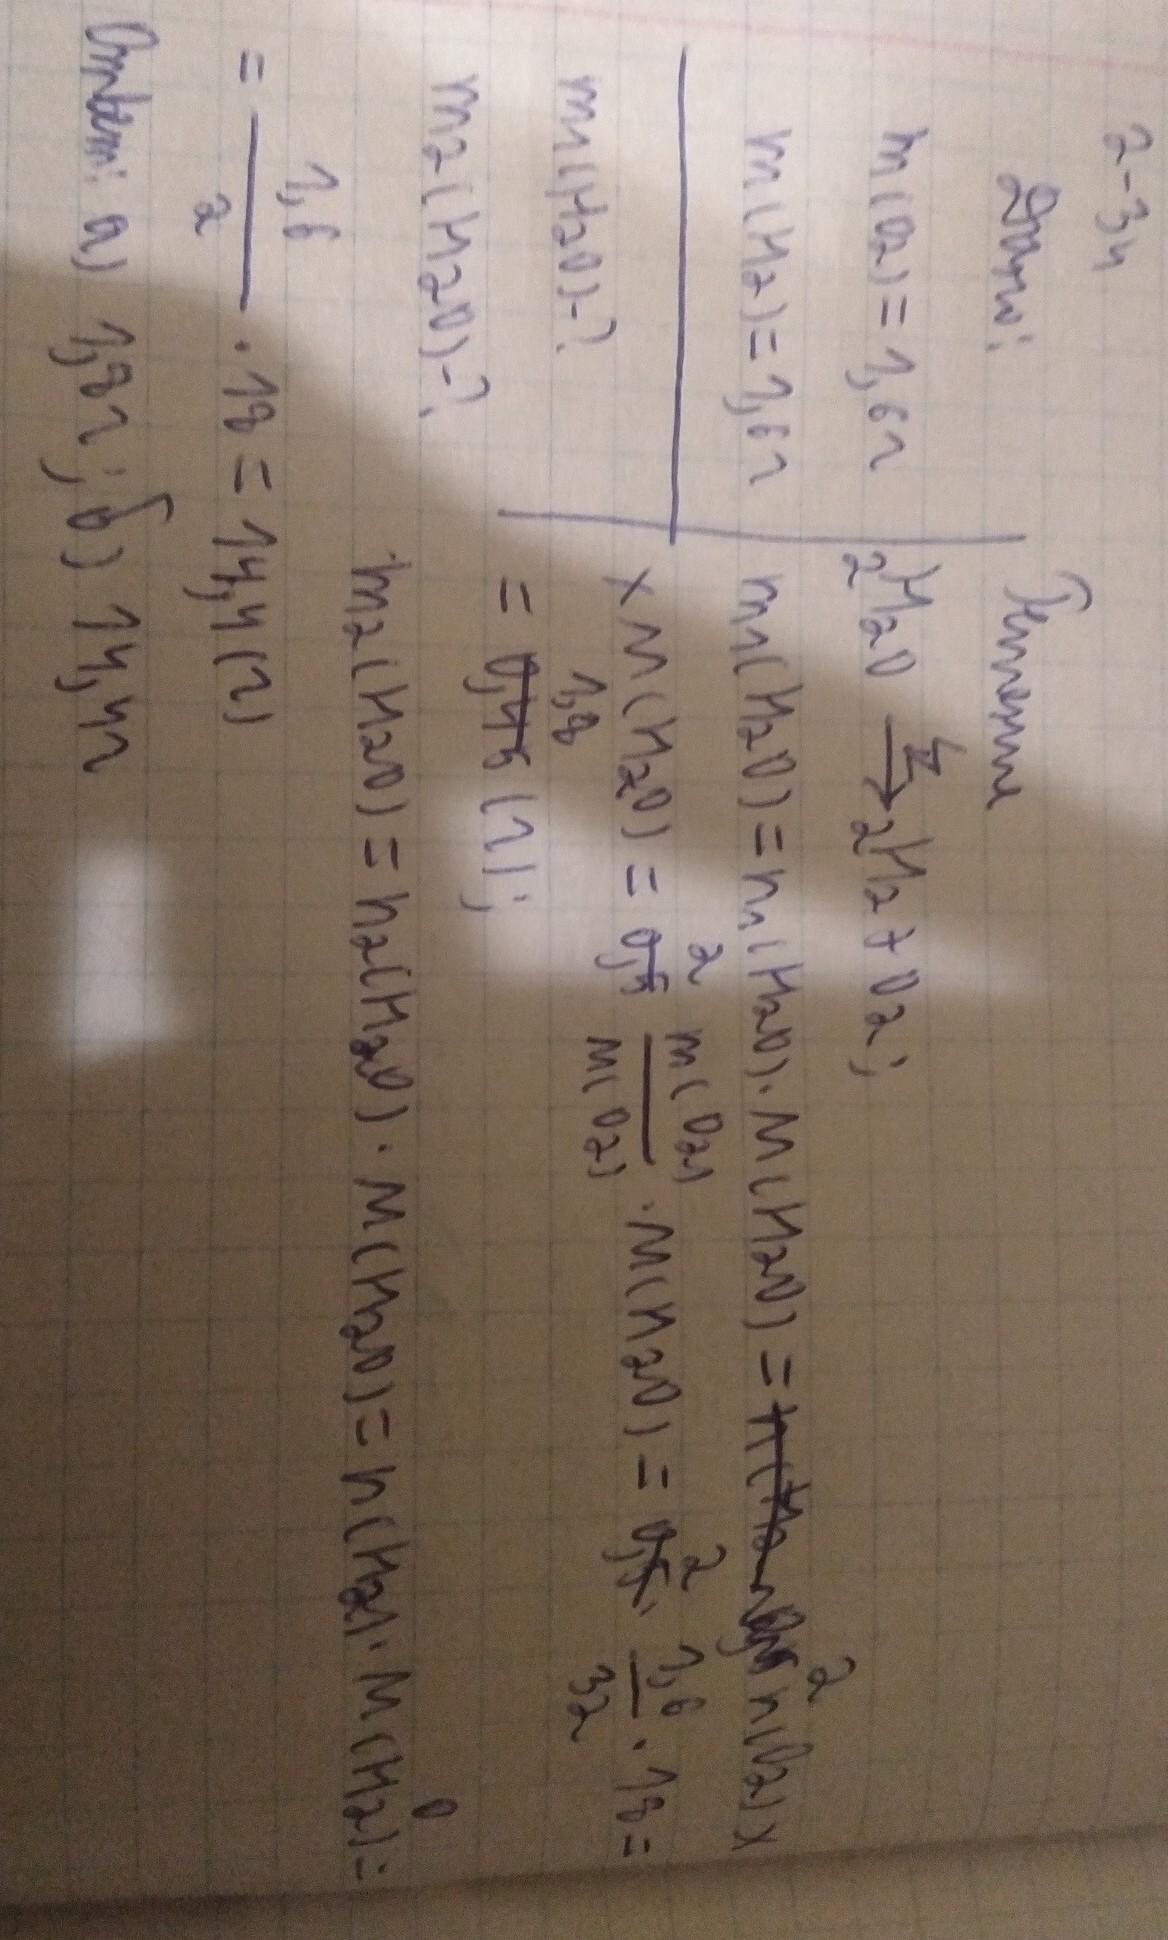 2-34
Дано:
m(O2)=1,6г
m(H2)=1,6г
m1(H2O)-?
m2(H2O)-?
Решение
2H2O → 2H2 + O2;
m1(H2O)=n1(H2O)·M(H2O)= 2 n(O2) x
x M(H2O) = 2 m(O2)/M(O2) · M(H2O) = 2 · 1,6/32 · 18 =
= 1,8 (г);
m2(H2O)=n2(H2O)·M(H2O)=n(H2)·M(H2O)=
= 1,6/2 · 18 = 14,4(г)
Ответ: а) 1,8г; б) 14,4г